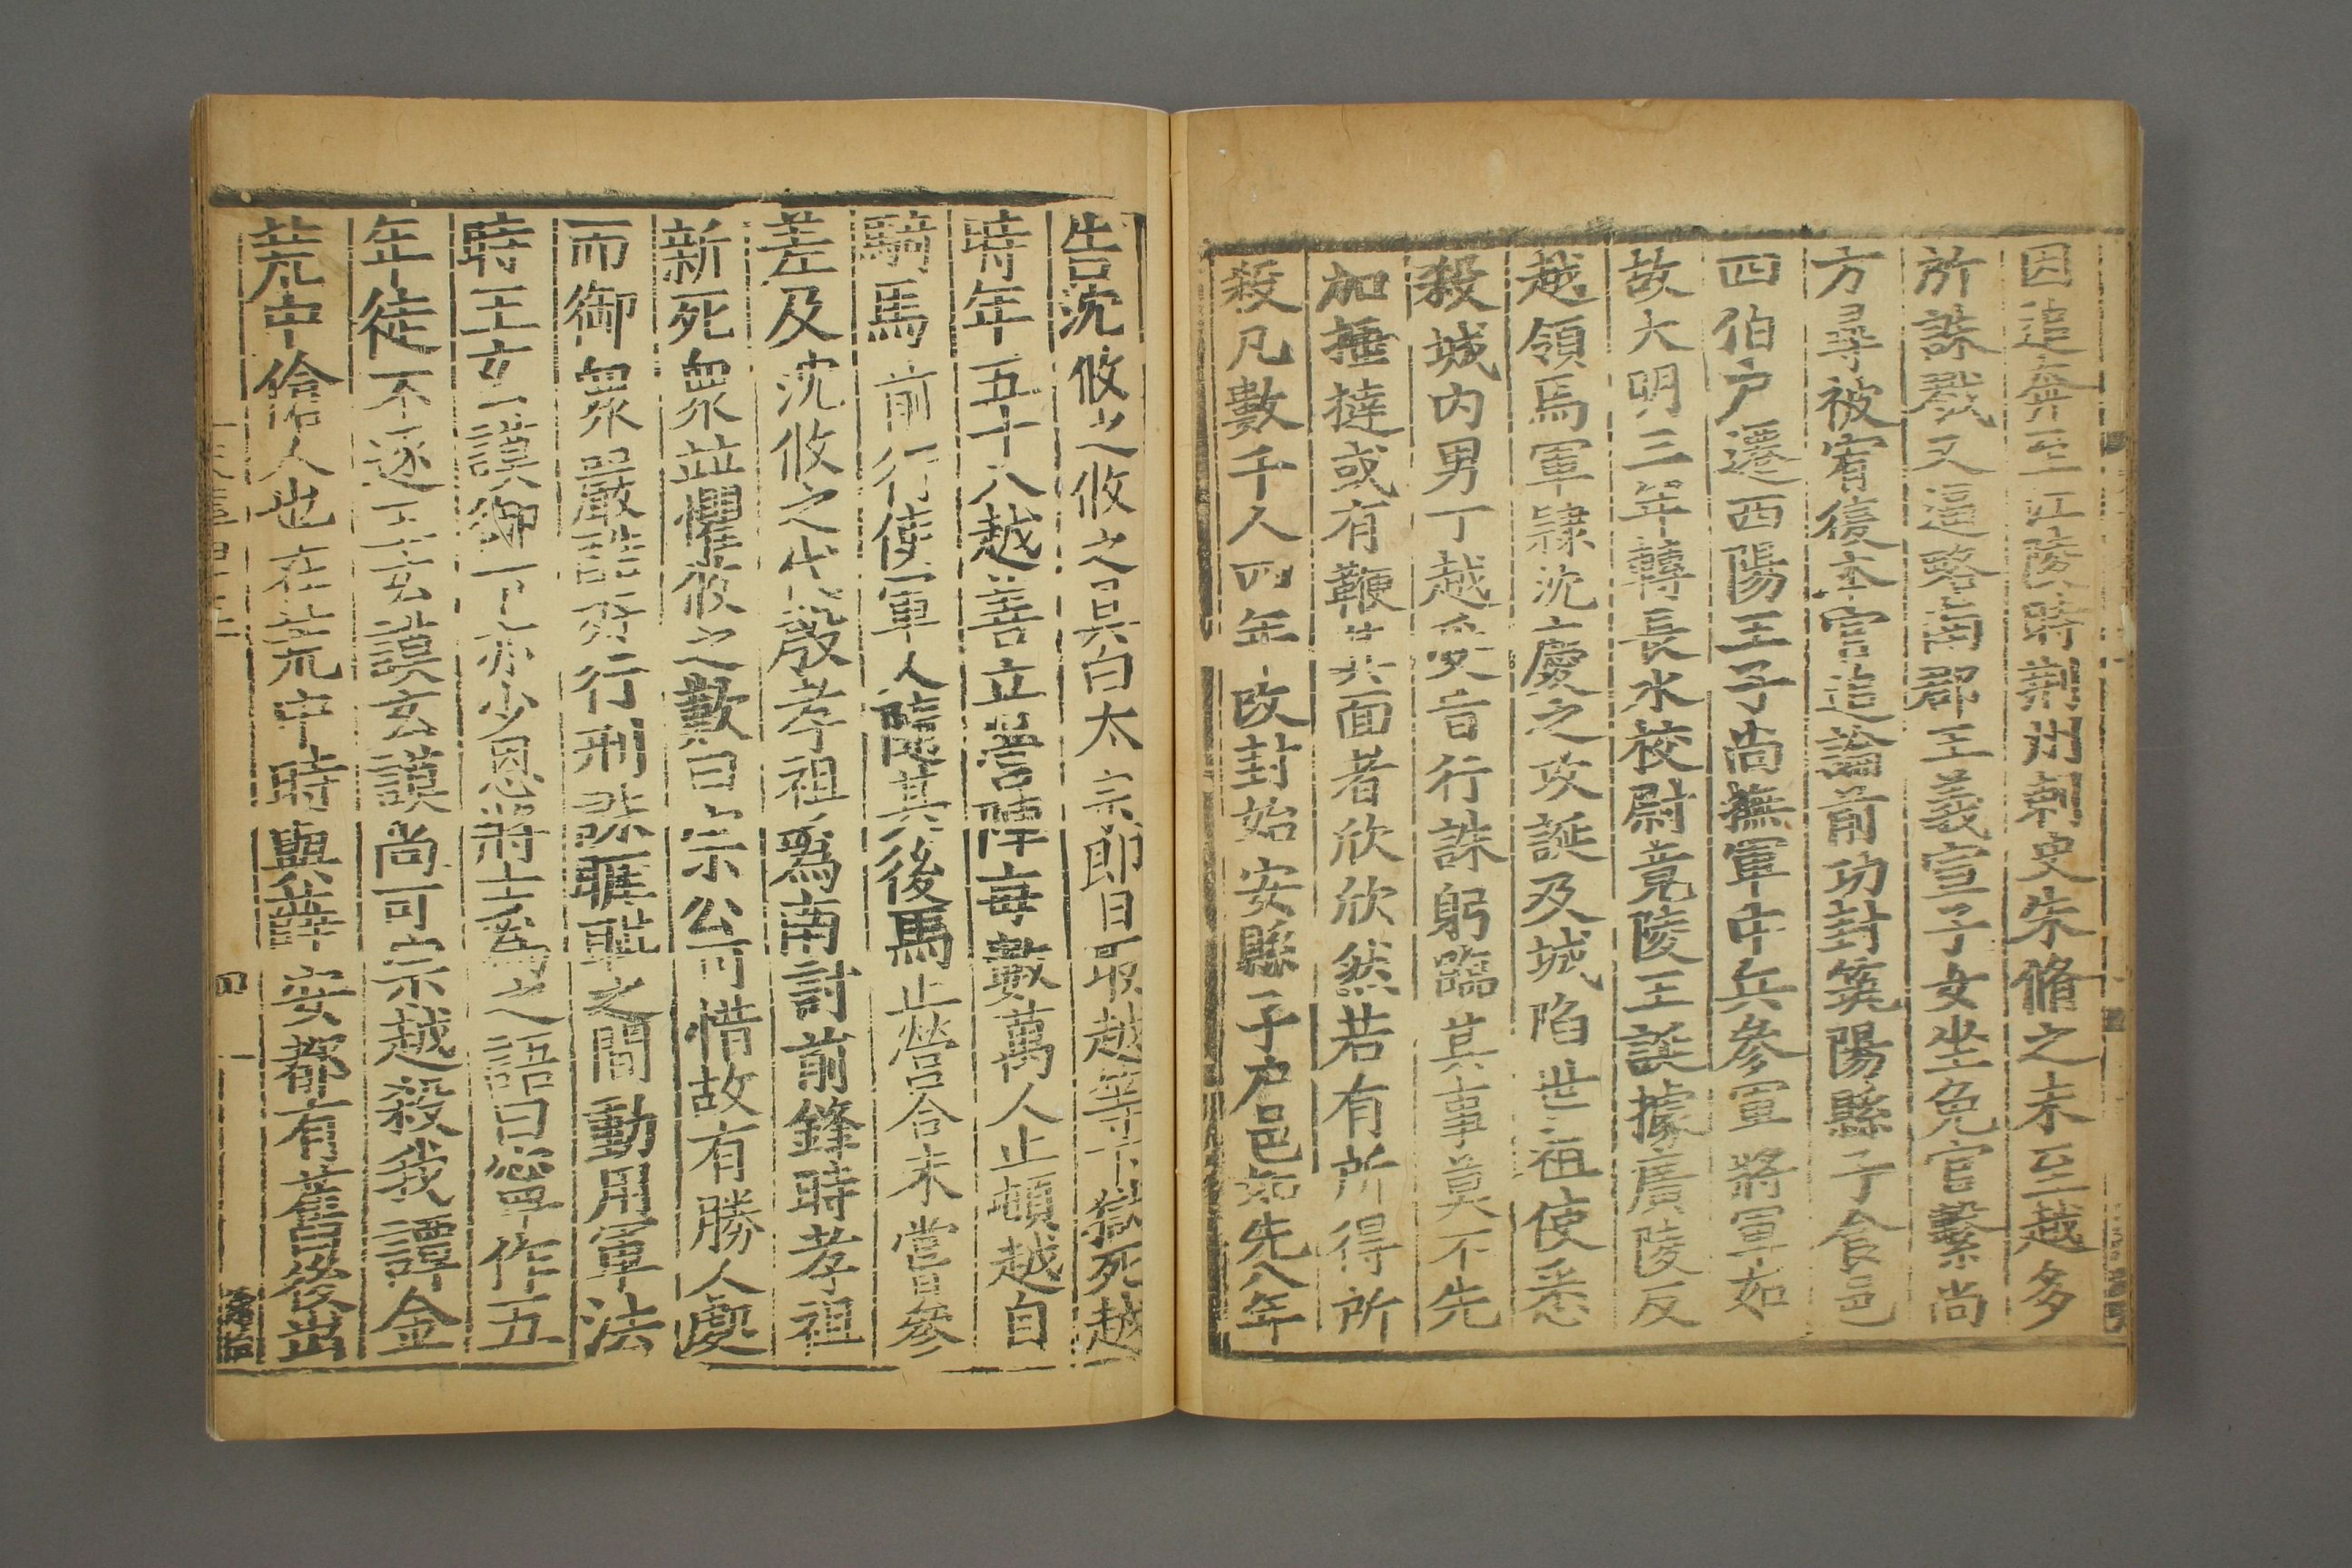 因追奔至江陵時荆州刺史朱脩之未至越多
所誅戮又逼略南郡王義宣子女坐免官繫尚
方尋被宥復本官追論前功封筑陽縣子食邑
四伯户遷西陽王子尚撫軍中兵參軍將軍如
故大明三年轉長水校尉竟陵王誕據廣陵反
越領馬軍隷沈慶之攻誕及城陷世祖使悉
殺城内男丁越受旨行誅躬臨其事莫不先
加捶撻或有鞭其面者欣欣然若有所得所
殺凡數千人四年改封始安縣子户邑如先八年
告沈攸之攸之具白太宗即日收越等下獄死越
時年五十八越善立營陣每數萬人止頓越自
騎馬前行使軍人隨其後馬止營合未嘗參
差及沈攸之代殷孝祖爲南討前鋒時孝祖
新死衆並懼攸之歎曰宗公可惜故有勝人處
而御衆嚴酷好行刑誅睚眦之間動用軍法
時王玄謨御下亦少恩將士爲之語曰寧作五
年徒不逐王玄謨玄謨尚可宗越殺我譚金
荒中傖人也在荒中時與薛安都有舊後出